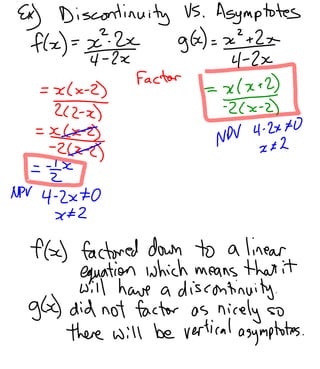 Ex) Discontinuity Vs. Asymptotes
f(x) = x²-2x / 4-2x    g(x) = x²+2x / 4-2x
Factor
= x(x-2) / 2(2-x)
= x(x-2) / -2(x-2)
= -1/2 x
NPV 4-2x≠0
x≠2
= x(x+2) / -2(x-2)
NPV 4-2x≠0
x≠2
f(x) factored down to a linear
equation which means that it
will have a discontinuity.
g(x) did not factor as nicely so
there will be vertical asymptotes.